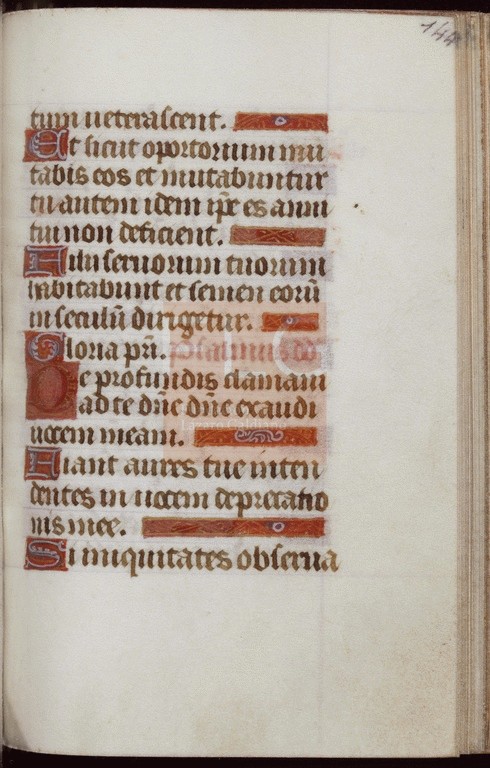 144
tum ueterascent.
Et sicut oportorium mu
tabis eos et mutabuntur
tu autem idem ip̃e es anni
tui non deficient.
Filii seruorum tuorum
habitabunt et semen eorũ
in seculũ dirigetur.
Gloria pr̃i. psalmus dd.
De profundis clamaui
ad te dñe dñe exaudi
uocem meam.
Lázaro Galdiano
Fiant aures tue inten
dentes in uocem deprecatio
nis mee.
Si iniquitates obserua